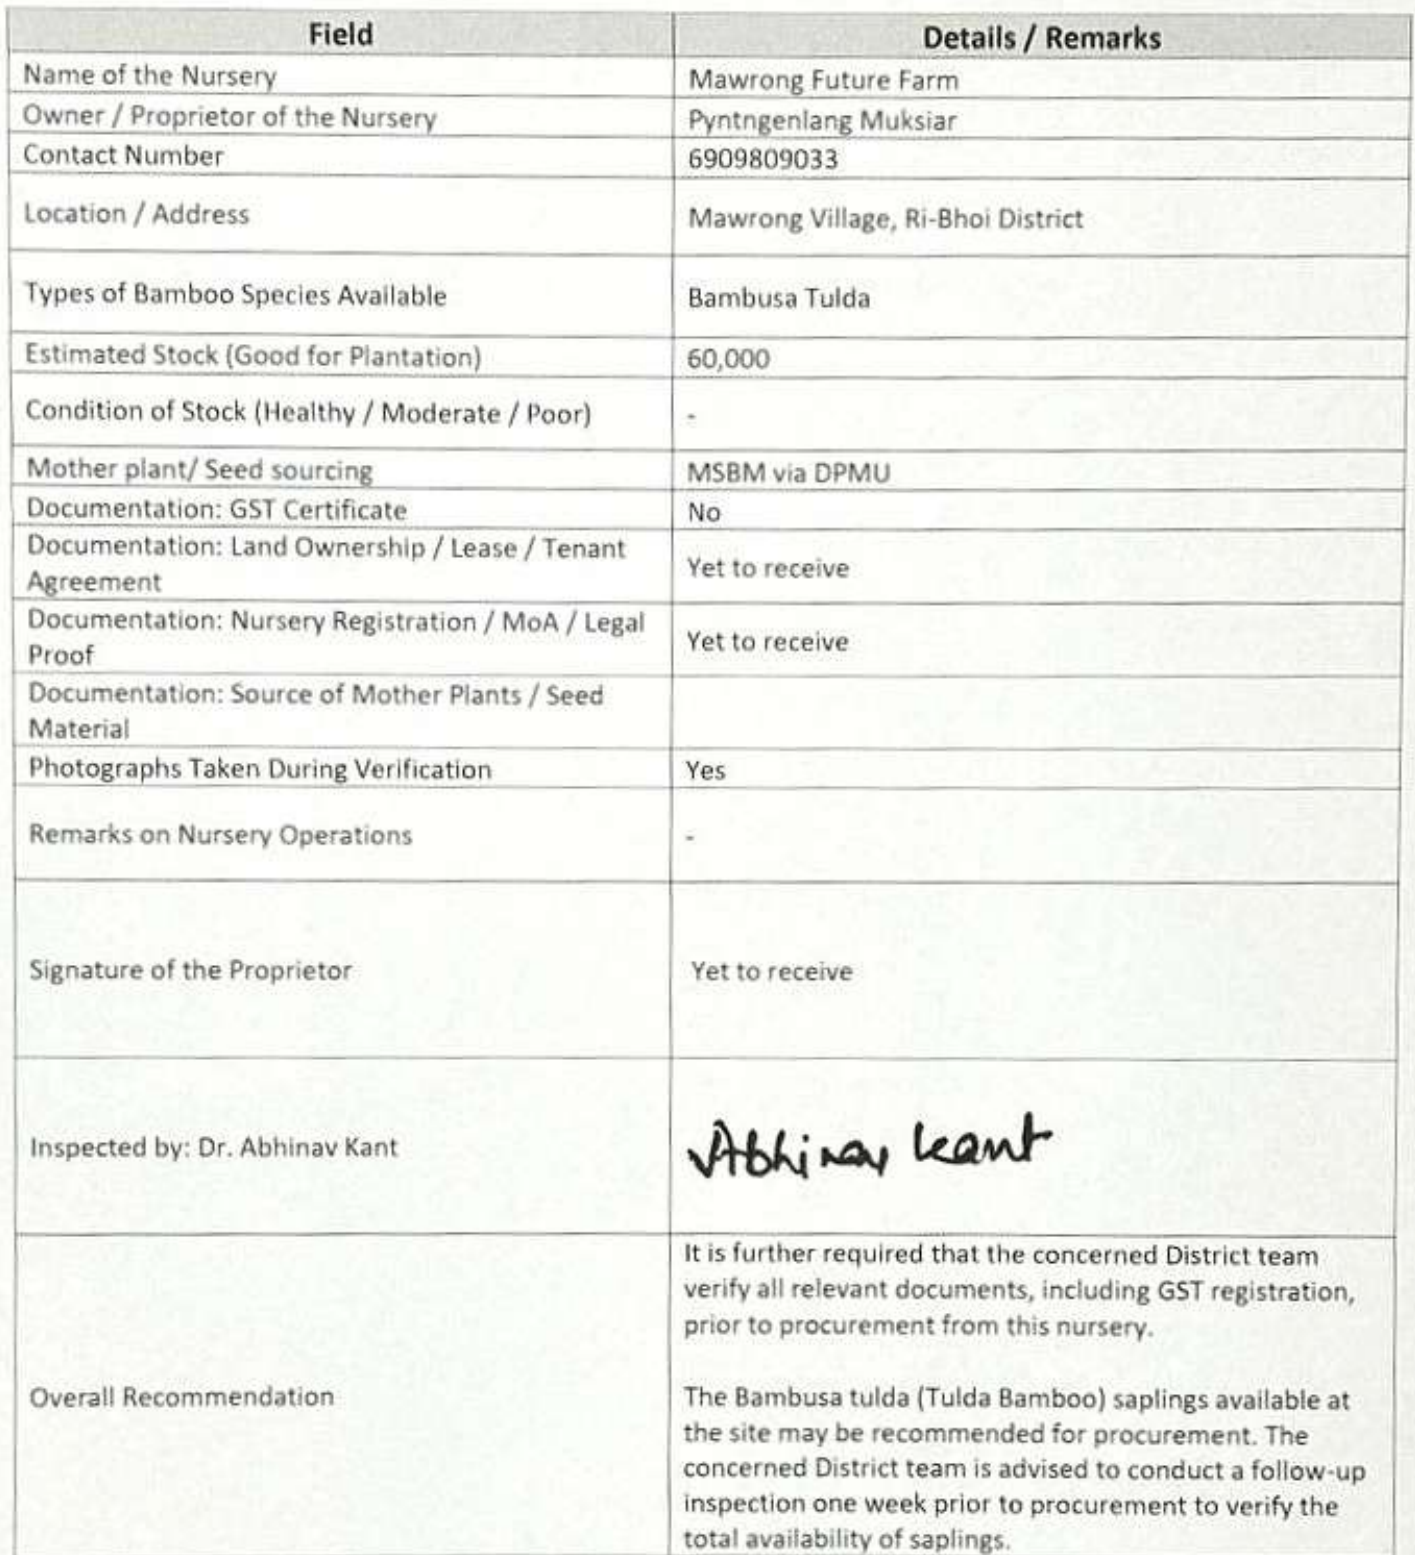 Field Details / Remarks
Name of the Nursery Mawrong Future Farm
Owner / Proprietor of the Nursery Pyntngenlang Muksiar
Contact Number 6909809033
Location / Address Mawrong Village, Ri-Bhoi District
Types of Bamboo Species Available Bambusa Tulda
Estimated Stock (Good for Plantation) 60,000
Condition of Stock (Healthy / Moderate / Poor) -
Mother plant/ Seed sourcing MSBM via DPMU
Documentation: GST Certificate No
Documentation: Land Ownership / Lease / Tenant
Agreement
Yet to receive
Documentation: Nursery Registration / MoA / Legal
Proof
Yet to receive
Documentation: Source of Mother Plants / Seed
Material
Photographs Taken During Verification Yes
Remarks on Nursery Operations -
Signature of the Proprietor Yet to receive
Inspected by: Dr. Abhinav Kant Abhinav Kant
Overall Recommendation
It is further required that the concerned District team
verify all relevant documents, including GST registration,
prior to procurement from this nursery.
The Bambusa tulda (Tulda Bamboo) saplings available at
the site may be recommended for procurement. The
concerned District team is advised to conduct a follow-up
inspection one week prior to procurement to verify the
total availability of saplings.